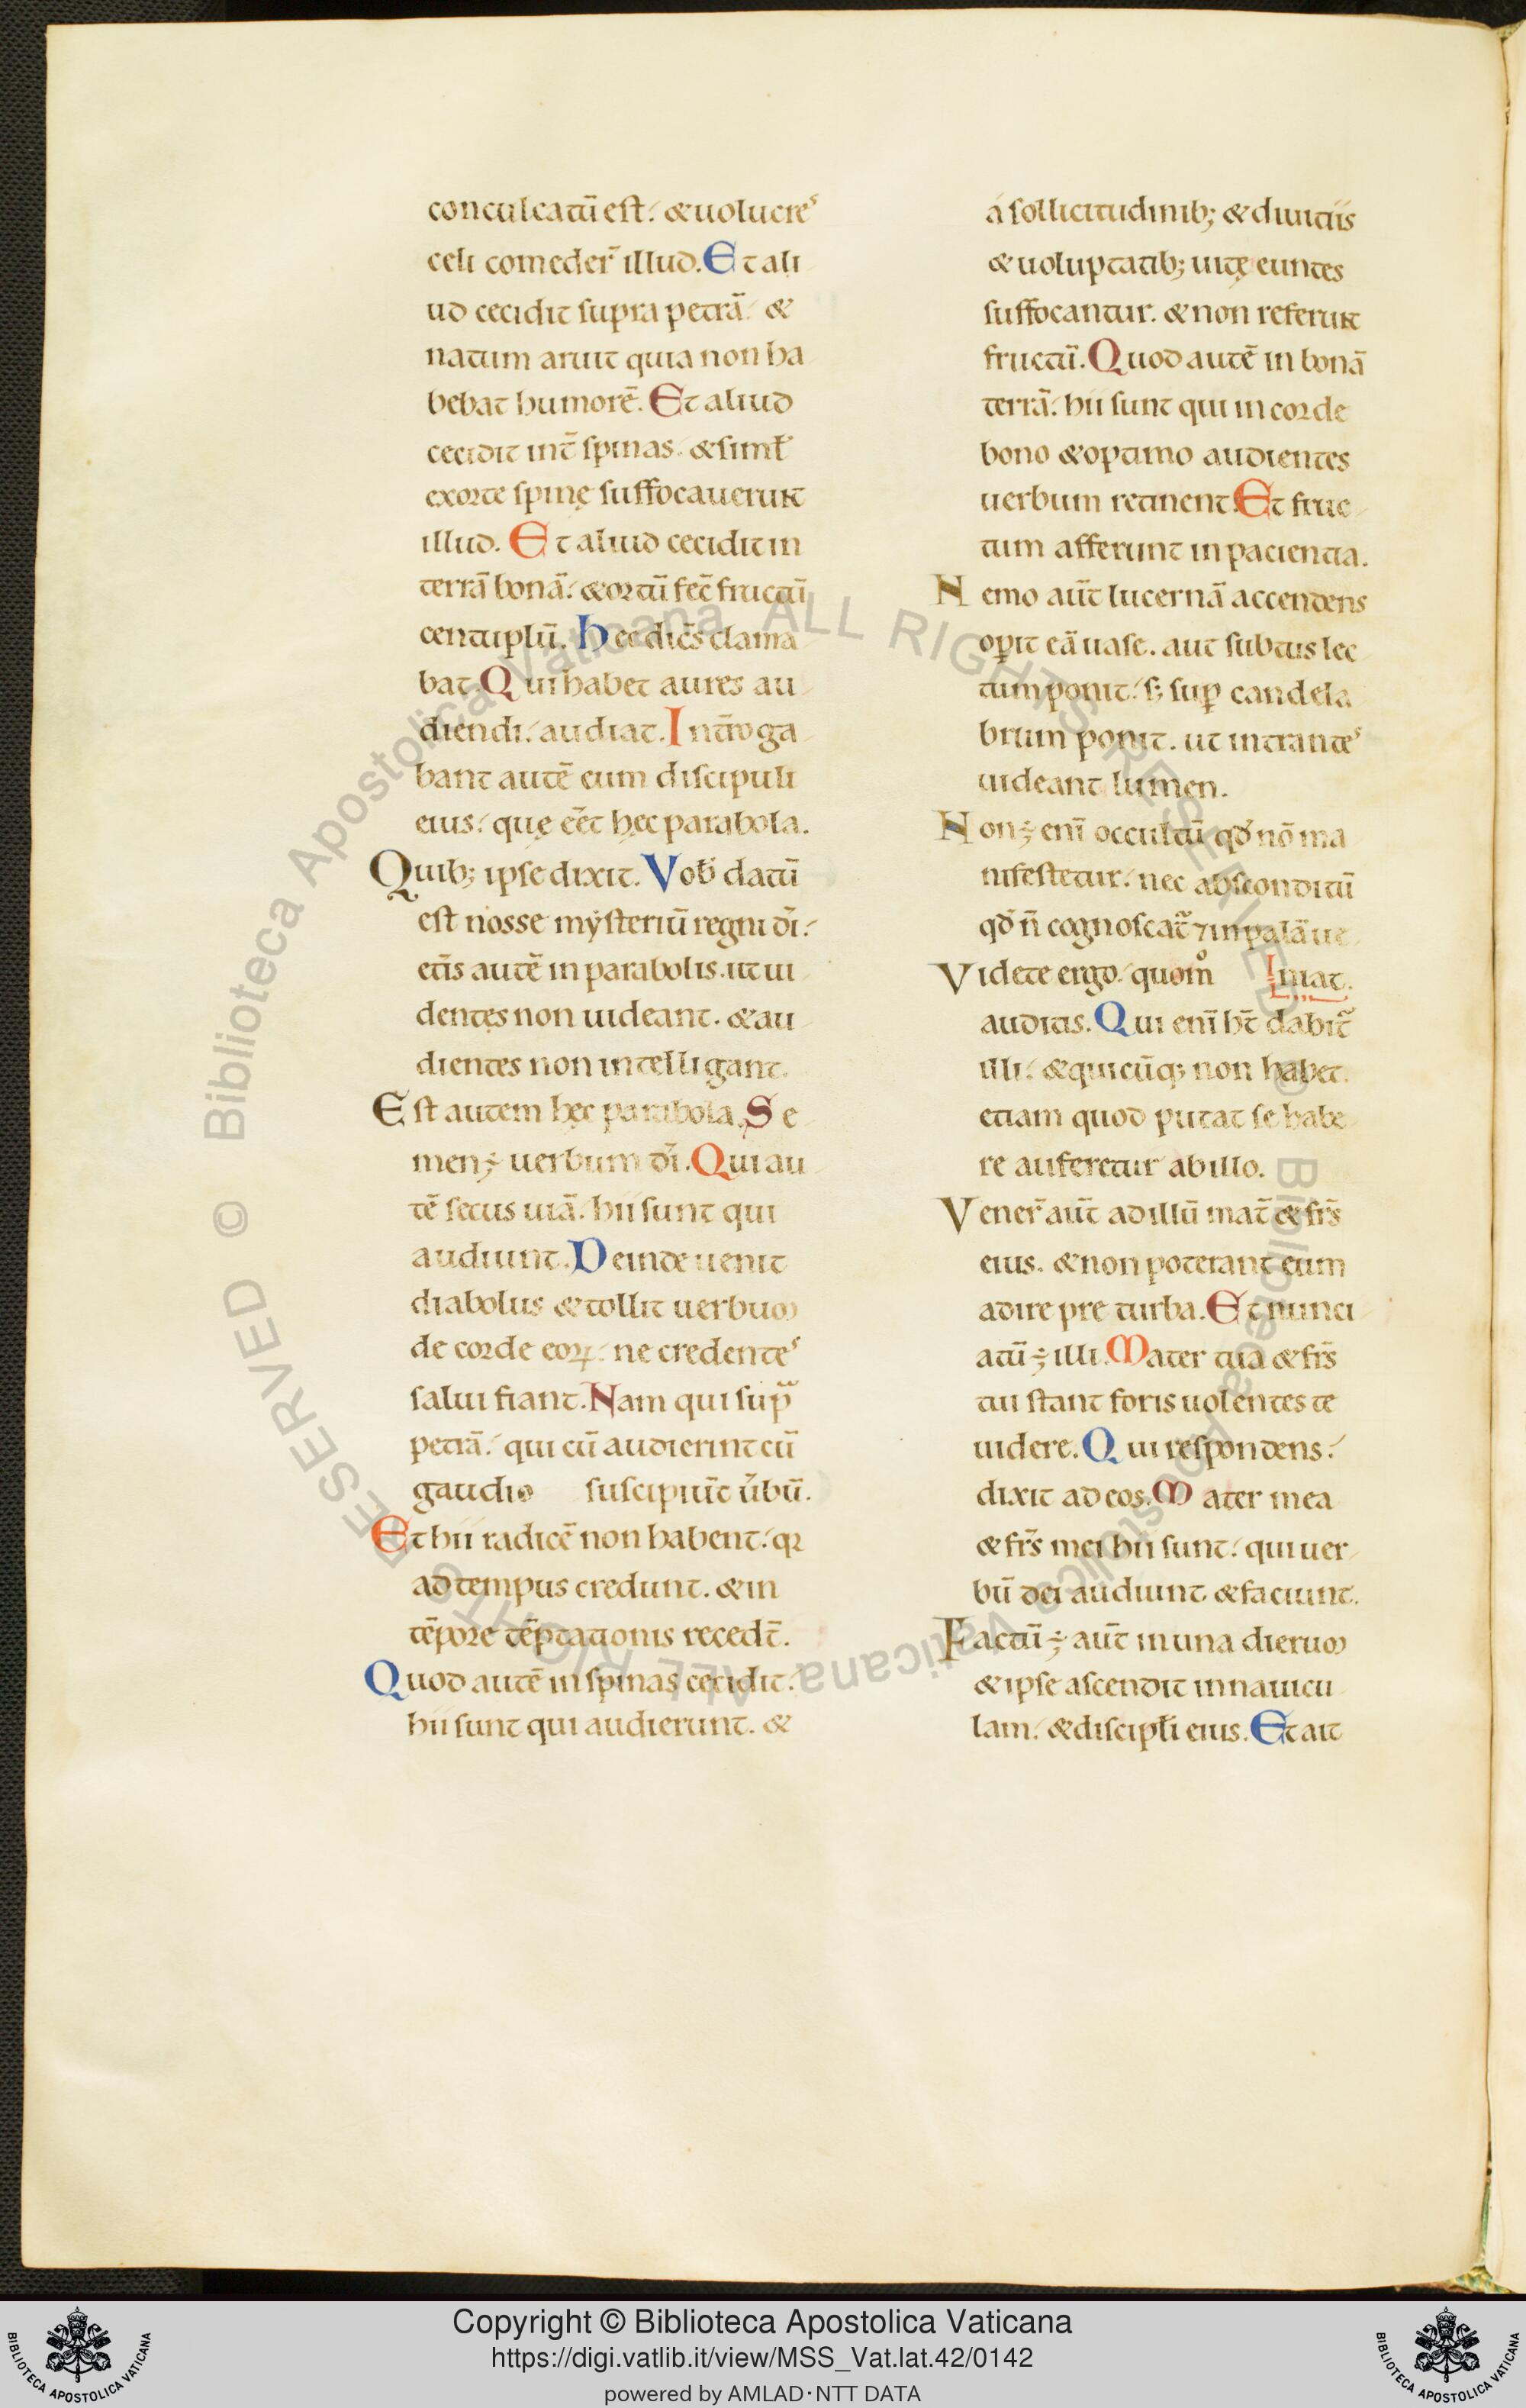 conculcatū est. & uolucres
celi comeder̄ illud. Et ali
ud cecidit supra petrā. &
natum aruit quia non ha
bebat humorē. Et aliud
cecidit int̄ spinas. & simł
exorte spinę suffocauerunt
illud. Et aliud cecidit in
terrā bonā. & ortū fec̄ fructū
centuplū. Hec dicēs clama
bat. Qui habet aures au
diendi. audiat. Int̄roga
bant autē eum discipuli
eius. quę eēt hęc parabola.
Quib; ipse dixit. Vob̄ datū
est nosse mẏsteriū regni dī.
cet̄is autē in parabolis. ut ui
dentes non uideant. & au
dientes non intelligant.
Est autem hęc parabola. Se
men ÷ uerbum dī. Qui au
tē secus uiā. hii sunt qui
audiunt. Deinde uenit
diabolus & tollit uerbum
de corde eoꝝ. ne credentes
salui fiant. Nam qui sup̄
petrā. qui cū audierint cū
gaudio suscipiūt ūbū.
Et hii radicē non habent. qꝛ
ad tempus credunt. & in
tēpore tēptationis recedt̄.
Quod autē in spinas cecidit.
hii sunt qui audierunt. &
a sollicitudinib; & diuitiis
& uoluptatib; uitę euntes
suffocantur. & non referunt
fructū. Quod autē in bonā
terrā. hii sunt qui in corde
bono & optimo audientes
uerbum retinent. Et fruc
tum afferunt in paciencia.
Nemo aūt lucernā accendens
oꝑit eā uase. aut subtus lec
tum ponit. s; suꝑ candela
brum ponit. ut intrantes
uideant lumen.
Non ÷ enī occultū qd̄ nō ma
nifestetur. nec absconditū
qd̄ n̄ cognoscat̄ ⁊ in palā ue
Videte ergo. quom̊ niat.
auditis. Qui enī ht̄ dabit̄
illi. & quicūq; non habet.
etiam quod putat se habe
re auferetur ab illo.
Vener̄ aūt ad illū mat̄ & frs̄
eius. & non poterant eum
adire pre turba. Et nunci
atū ÷ illi. Mater tua & frs̄
tui stant foris uolentes te
uidere. Qui respondens.
dixit ad eos. Mater mea
& frs̄ mei hii sunt. qui uer
bū dei audiunt & faciunt.
Factū ÷ aūt in una dierum
& ipse ascendit in nauicu
lam. & discipłi eius. Et ait
Copyright © Biblioteca Apostolica Vaticana
https://digi.vatlib.it/view/MSS_Vat.lat.42/0142
powered by AMLAD·NTT DATA
BIBLIOTECA APOSTOLICA VATICANA
BIBLIOTECA APOSTOLICA VATICANA
© Biblioteca Apostolica Vaticana ALL RIGHTS RESERVED
© Biblioteca Apostolica Vaticana ALL RIGHTS RESERVED